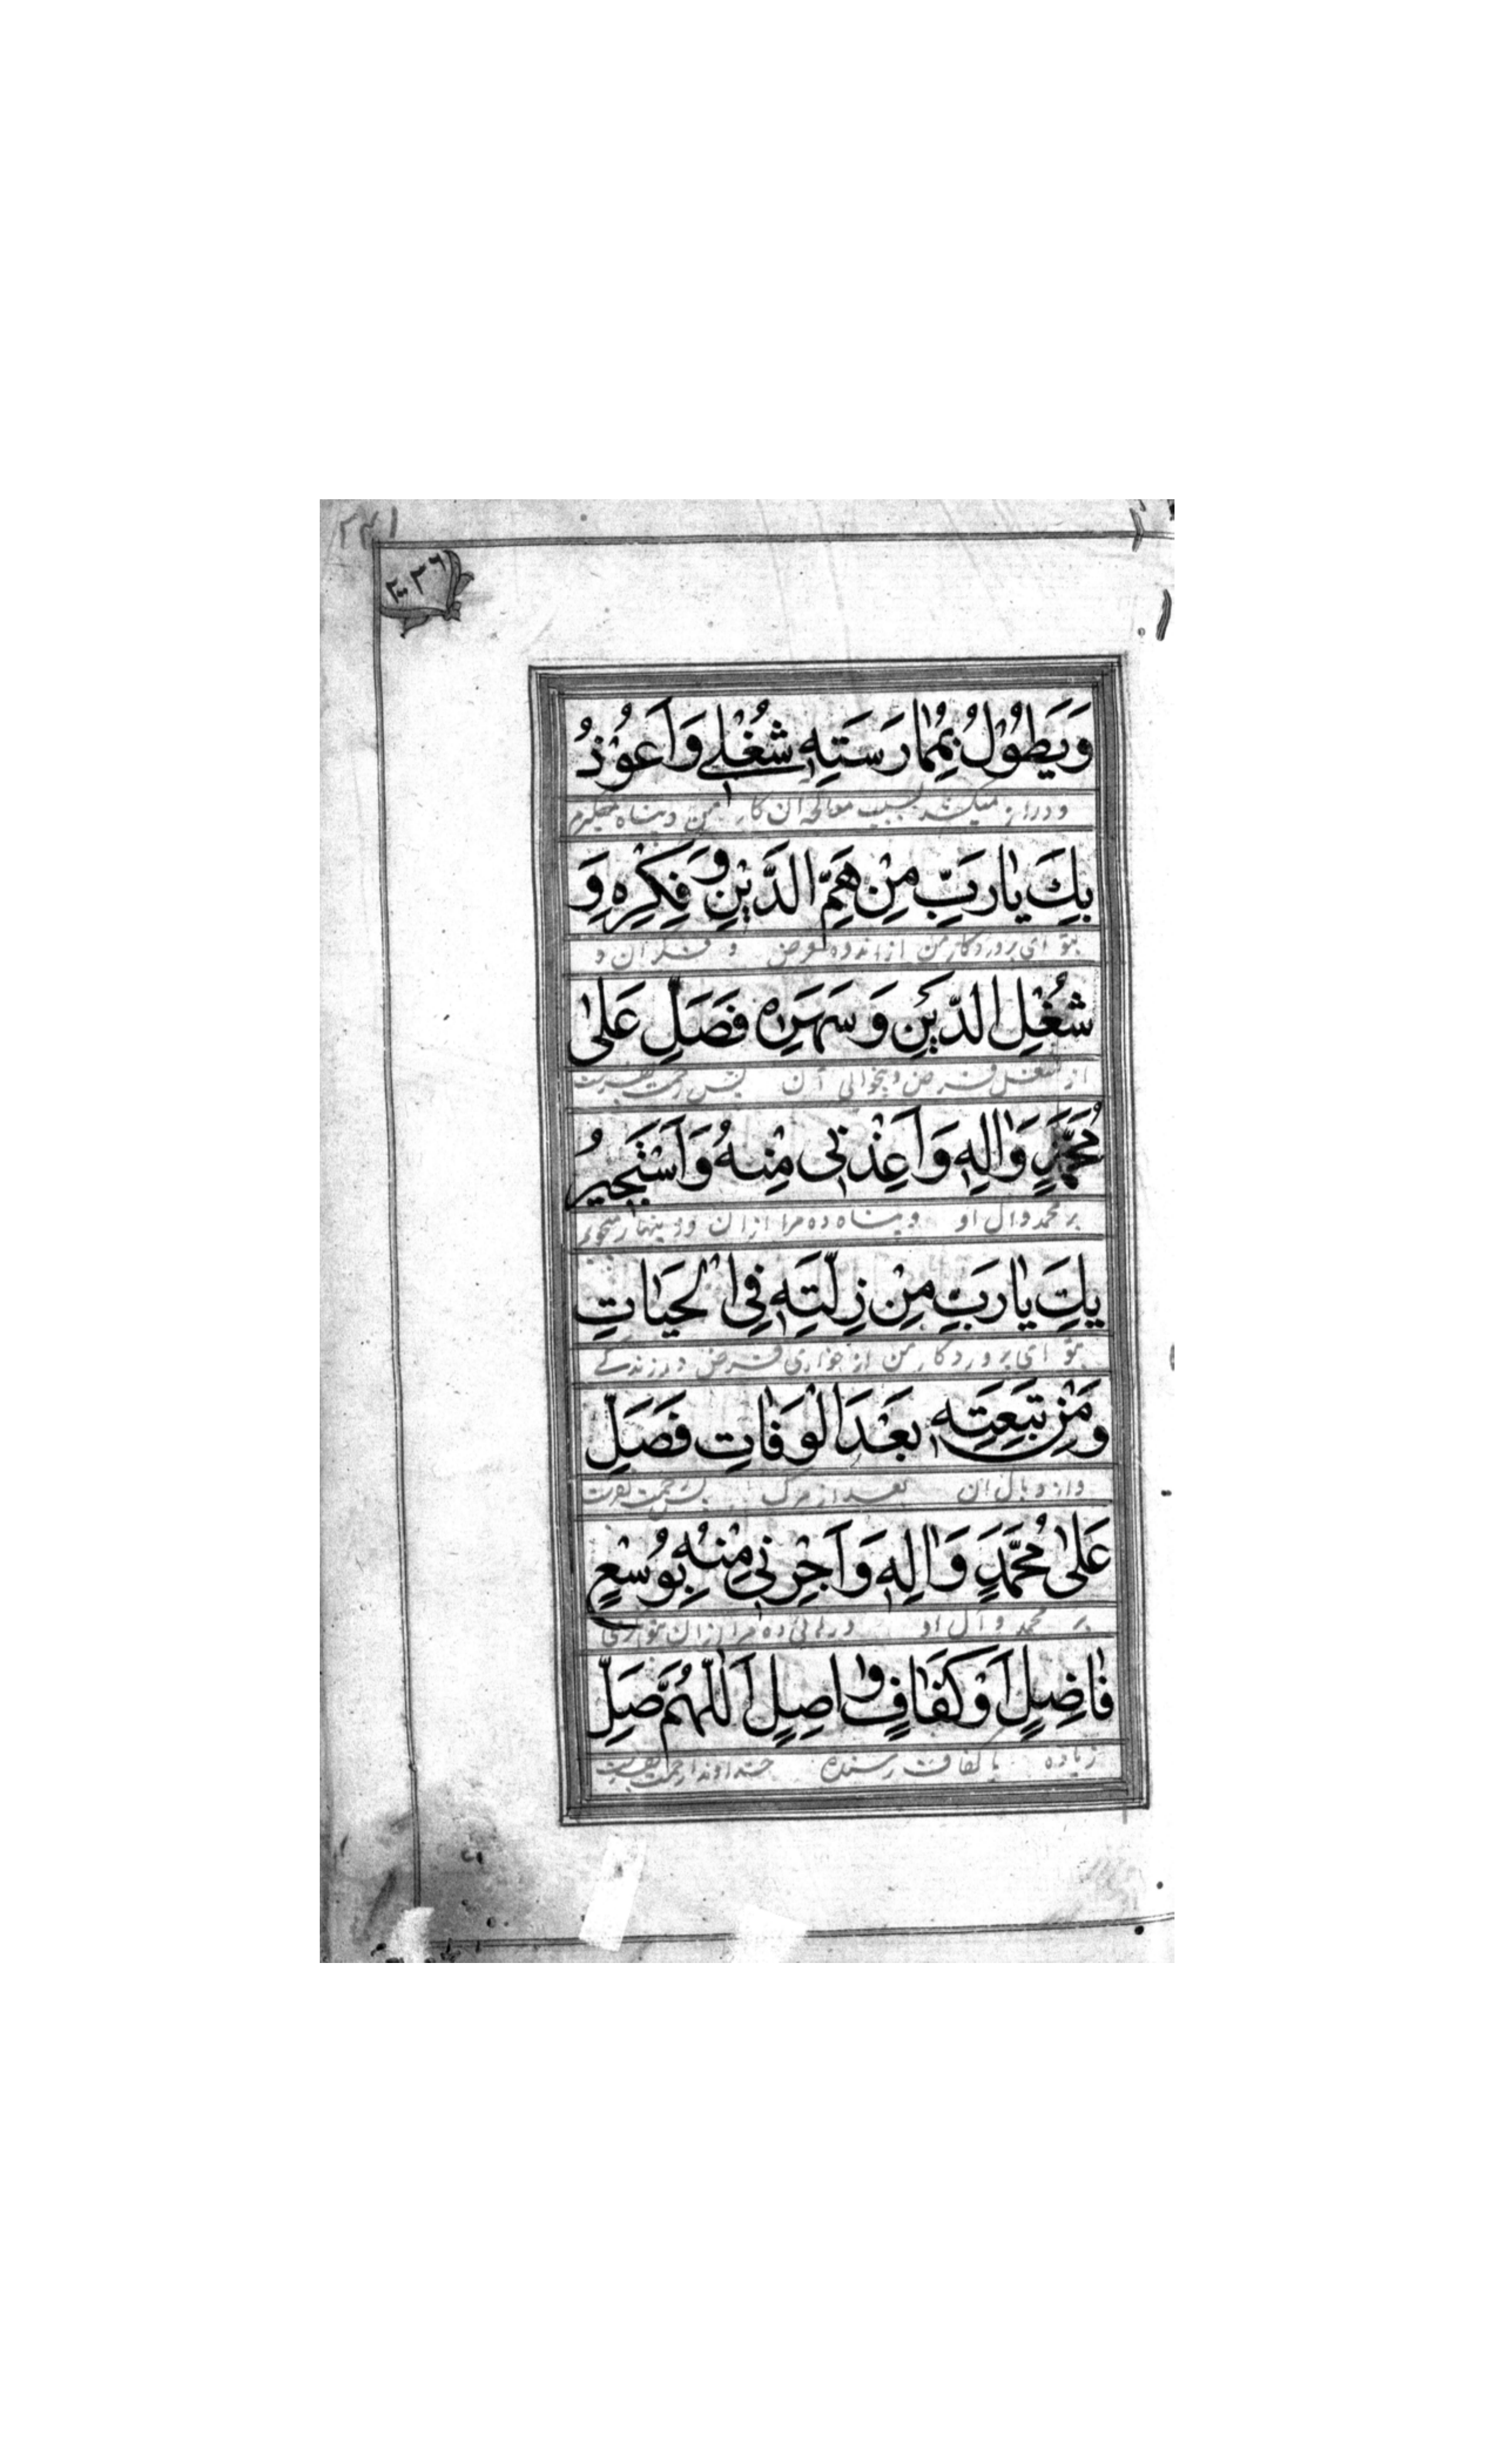 ٢٣١
٢٠٣٦
وَيَطُوْلُ بِمُمٰارَسَتِهِ شُغْلِي وَاَعُوْذُ
و دراز میکند بسبب معالجه آن کار من و پناه میگیرم
بِكَ يٰارَبِّ مِنْ هَمِّ الدَّيْنِ وَفِكْرِهِ وَ
بتو ای پروردگار من از اندوه قرض و فکر آن و
شُغْلِ الدَّيْنِ وَسَهَرِهِ فَصَلِّ عَلىٰ
از شغل قرض و بیخوابی آن پس رحمت بفرست
مُحَمَّدٍ وَاٰلِهِ وَاَعِذْنِى مِنْهُ وَاَسْتَجِيرُ
بر محمد و ال او و پناه ده مرا ازان و زینهار میجویم
بِكَ يٰارَبِّ مِنْ ذِلَّتِهِ فِي الْحَيٰاتِ
بتو ای پروردگار من از خواری قرض در زندگے
وَمِنْ تَبِعَتِهِ بَعْدَ الْوَفٰاتِ فَصَلِّ
و از وبال ان بعد از مرگ پس رحمت بفرست
عَلىٰ مُحَمَّدٍ وَاٰلِهِ وَاَجِرْنِي مِنْهُ بِوُسْعٍ
بر محمد و آل او و رهائی ده مرا ازان بتوانگری
فٰاضِلٍ اَوْ كَفٰافٍ وٰاصِلٍ اَللّٰهُمَّ صَلِّ
زیاده یا کفاف رسنده خداوندا رحمت بفرست